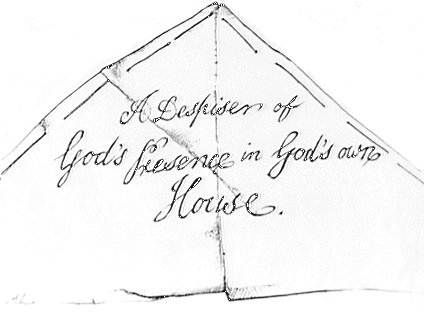 A Despiser of
God's Presence in God's own
House.